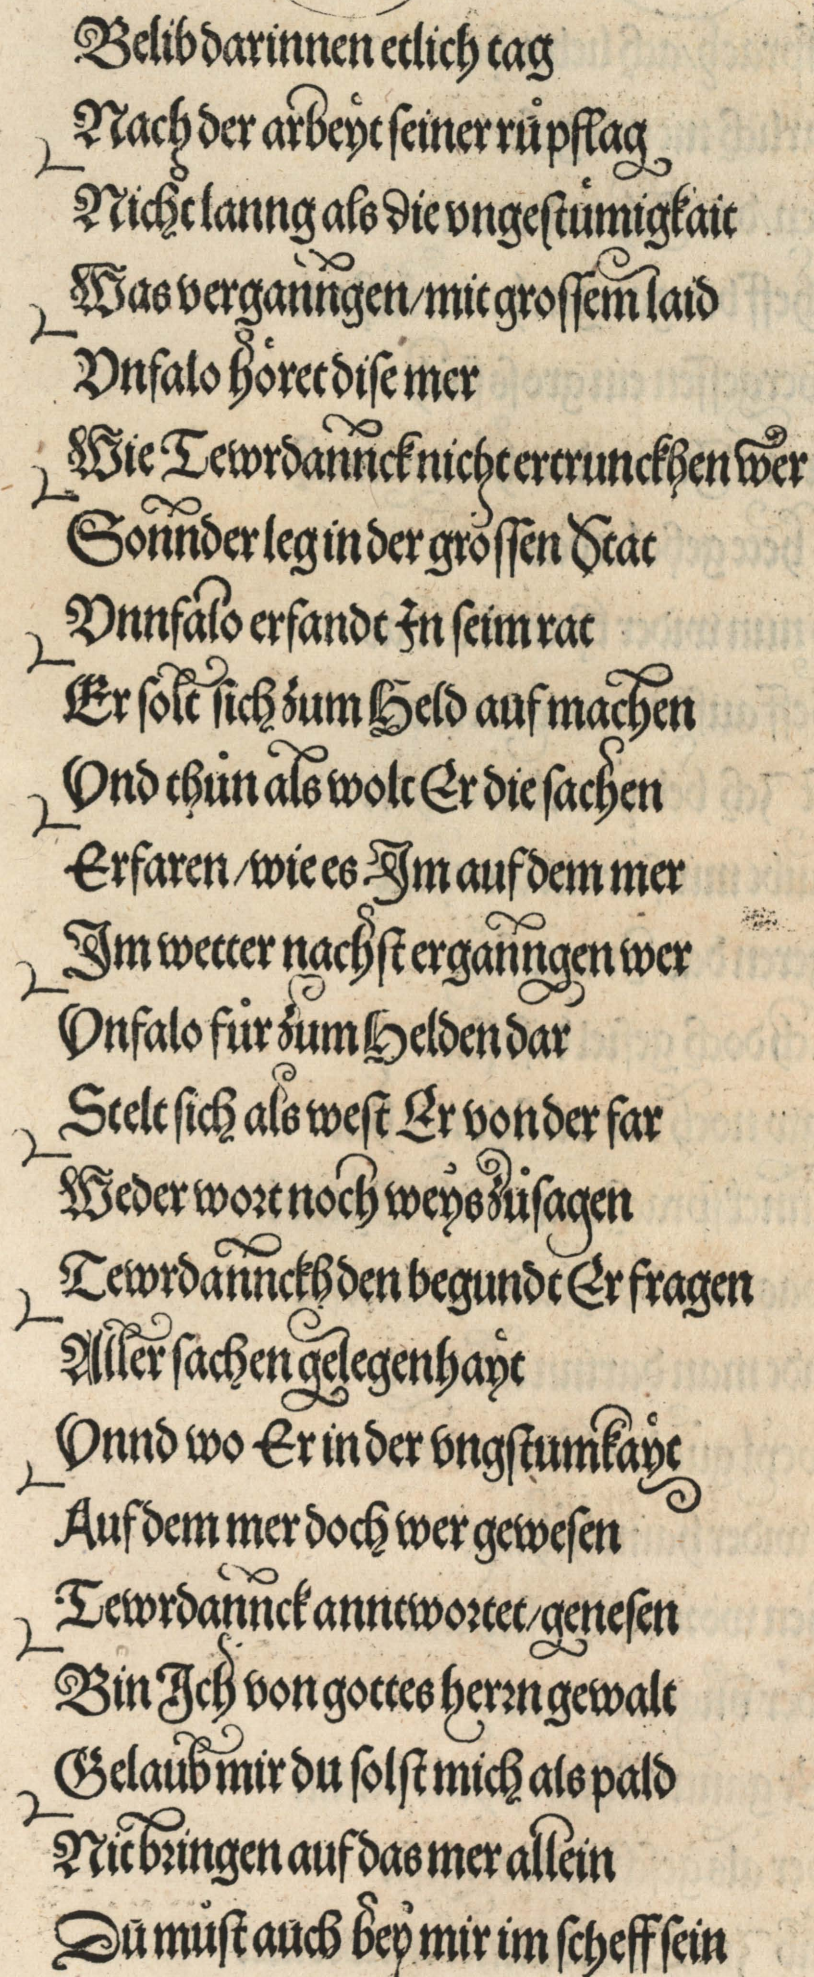 Belib darinnen etlich tag
Nach der arbeyt seiner růpflag
Nicht lanng als die vngestümigkait
Was verganngen/mit grossem laid
Vnfalo höret dise mer
Wie Tewrdannck nicht ertrunckhen wer
Sonnder leg in der grossen Stat
Vnnfalo erfandt In seim rat
Er solt sich zum Held auf machen
Vnd thůn als wolt Er die sachen
Erfaren/wie es Im auf dem mer
Im wetter nachst erganngen wer
Vnfalo fůr zum Helden dar
Stelt sich als west Er von der far
Weder wort noch weys zůsagen
Tewrdannckh den begundt Er fragen
Aller sachen gelegenhayt
Vnnd wo Er in der vngstumkayt
Auf dem mer doch wer gewesen
Tewrdannck anntwortet/genesen
Bin Ich von gottes herrn gewalt
Gelaub mir du solst mich als pald
Nit bringen auf das mer allein
Du můst auch bey mir im scheff sein